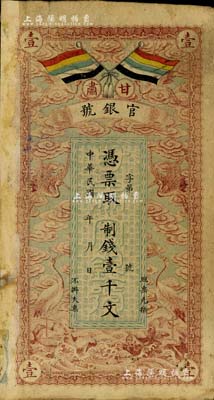 上海陽明拍賣
壹 壹
甘肅
官銀號
字第 號
憑票取制錢壹千文
中華民國 年 月 日
不掛失票
壹 壹
上海陽明拍賣